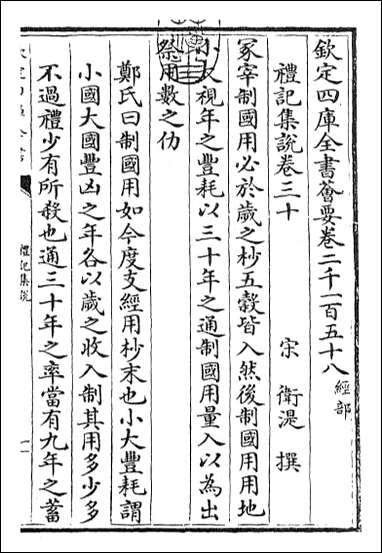 欽定四庫全書薈要卷二千一百五十八 經部
禮記集說卷三十
宋 衛湜 撰
冢宰制國用必於歲之杪五穀皆入然後制國用用地
小大視年之豐耗以三十年之通制國用量入以為出
祭用數之仂
鄭氏曰制國用如今度支經用杪末也小大豐耗謂
小國大國豐凶之年各以歲之收入制其用多少多
不過禮少有所殺也通三十年之率當有九年之蓄
禮記集說
一